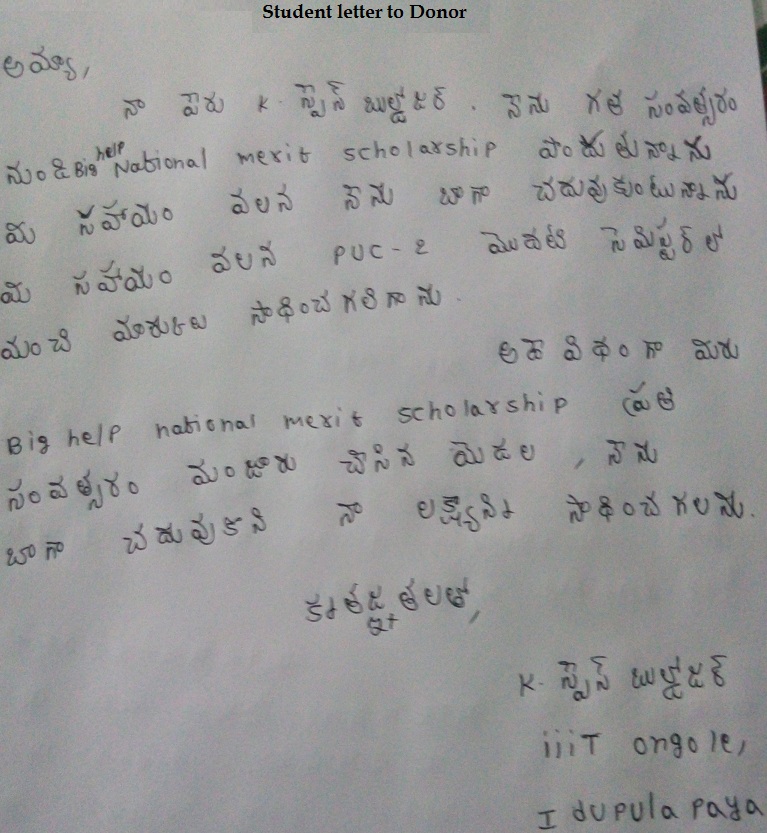 Student letter to Donor
అమ్మా,
నా పేరు K. స్టైన్ బుల్డోజర్. నేను గత సంవత్సరం
నుండి Big help National merit scholarship పొందుతున్నాను
మి సహాయం వలన నేను బాగా చదువుకుంటున్నాను
మి సహాయం వలన PUC-2 మొదటి సెమిస్టర్ లో
మంచి మారుకులు సాధించగలిగాను.
అదే విధంగా మీరు
Big help national merit scholarship ప్రతి
సంవత్సరం మంజూరు చేసిన యెడల, నేను
బాగా చదువుకొని నా లక్ష్యాన్ని సాధించగలను.
కృతజ్ఞతలతో,
K. స్టైన్ బుల్డోజర్
iiiT ongole,
Idupulapaya